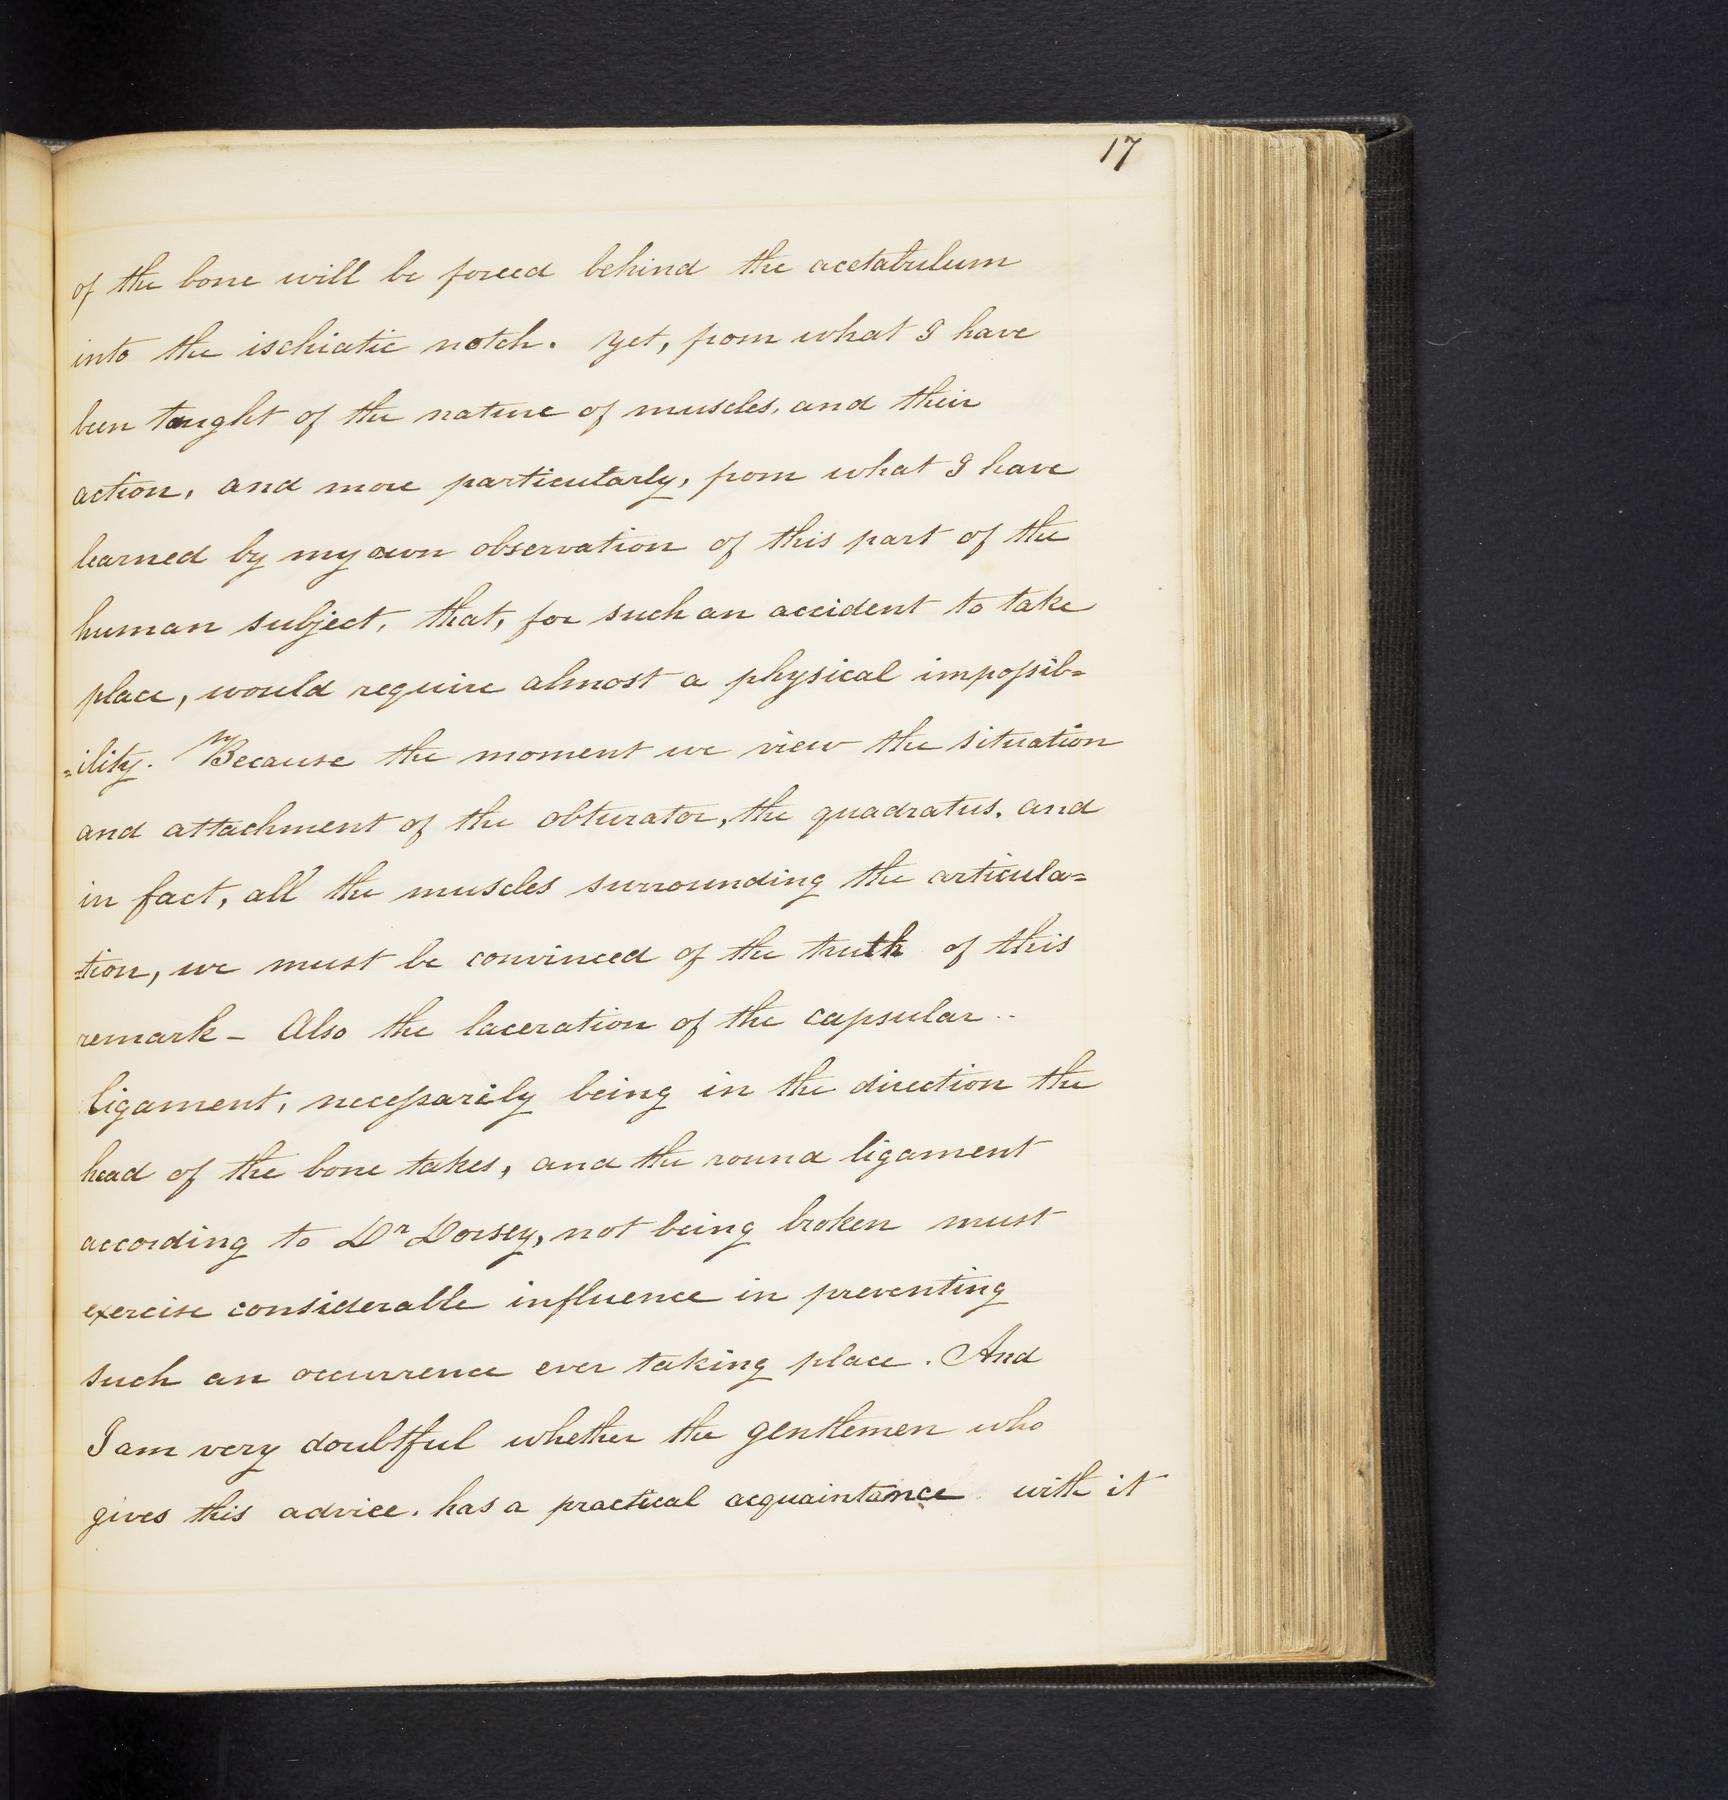 17
of the bone will be forced behind the acetabulum
into the ischiatic notch. Yet, from what I have
been taught of the nature of muscles, and their
action, and more particularly, from what I have
learned by my own observation of this part of the
human subject, that, for such an accident to take
place, would require almost a physical impossib=
=ility. Because the moment we view the situation
and attachment of the obturator, the quadratus, and
in fact, all the muscles surrounding the articula=
=tion, we must be convinced of the truth of this
remark – Also the laceration of the capsular
ligament, necessarily being in the direction the
head of the bone takes, and the round ligament
according to Dr Dorsey, not being broken must
exercise considerable influence in preventing
such an occurrence ever taking place. And
I am very doubtful whether the gentlemen who
gives this advice, has a practical acquaintance with it